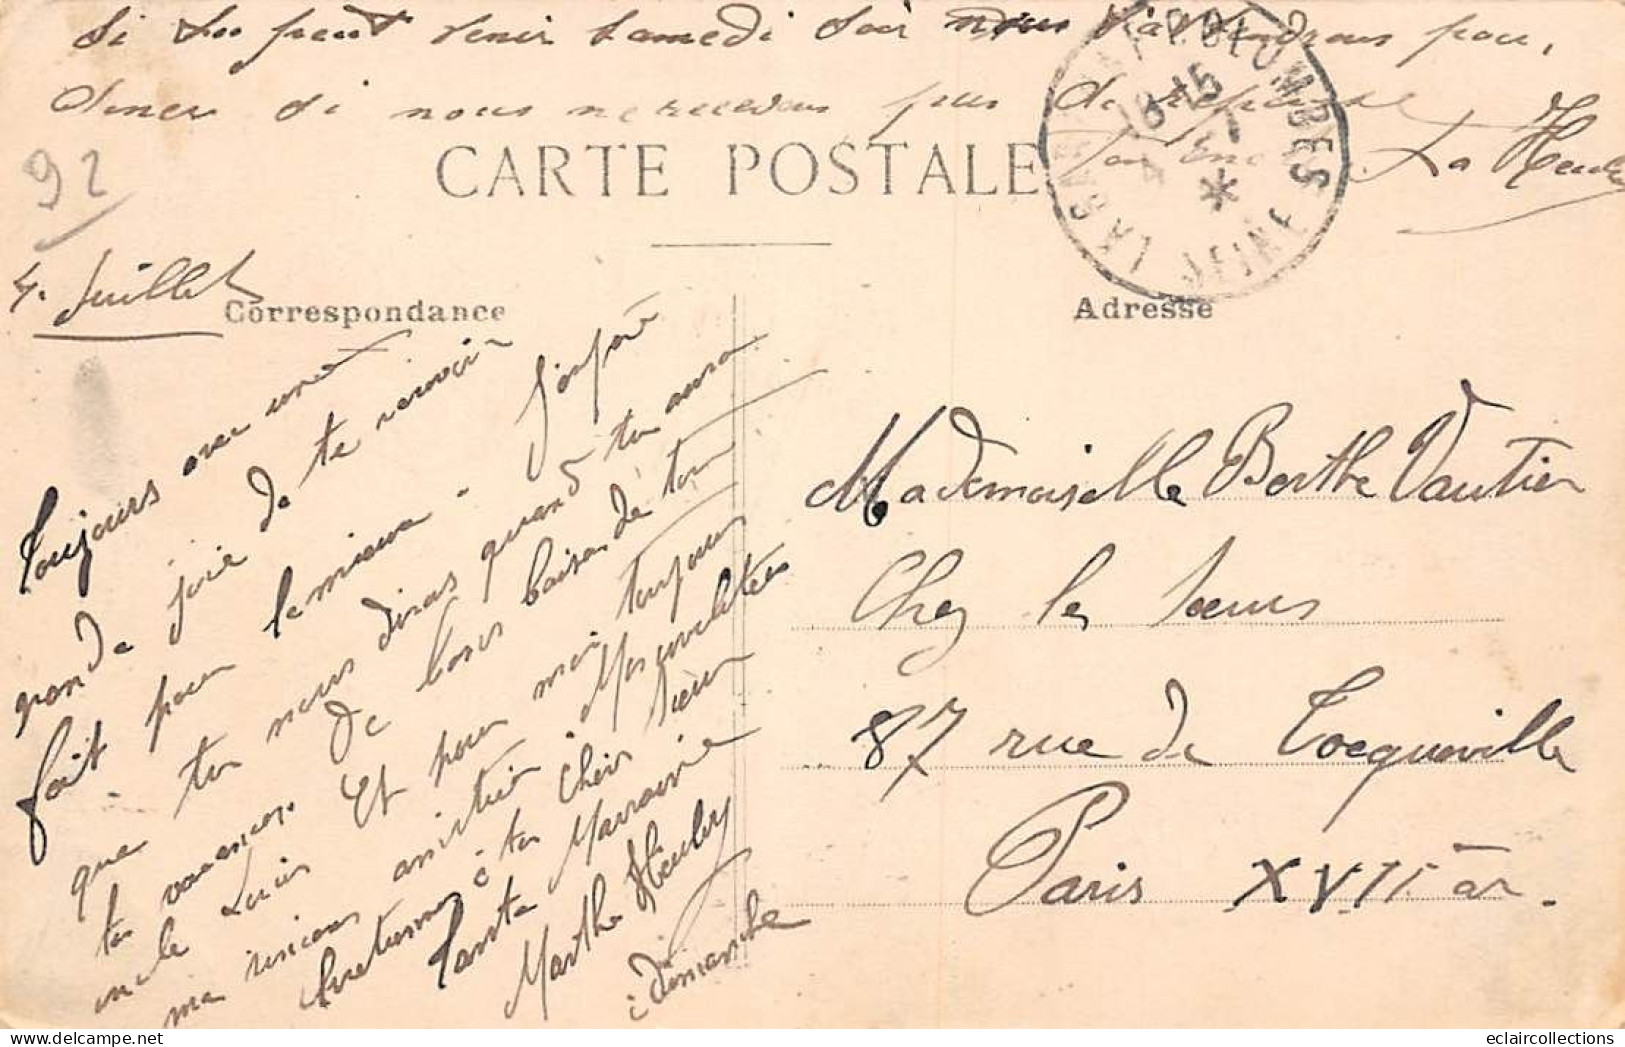 si tu peut venir samedi soir nous t'attendrons pour
diner si nous ne recevons pas de réponse
Tante La Heuley
CARTE POSTALE
92
LA GARENNE COLOMBES
18 15
4 7
SEINE
4. Juillet
Correspondance
Adresse
Toujours avec une
grande joie de te revoir
fait pour le mieux. J'espère
que tu nous diras quand tu aura
tes vacances. de bons baiser de ton
oncle Louis Et pour moi toujours
ma sincère amitié. Mes
à ta chère Sœur
Tante Marraine
Marthe Heuley
à dimanche
Mademoiselle Berthe Vautier
Chez les Sœurs
87 rue de Tocqueville
Paris XVII ar.
eclaircollections